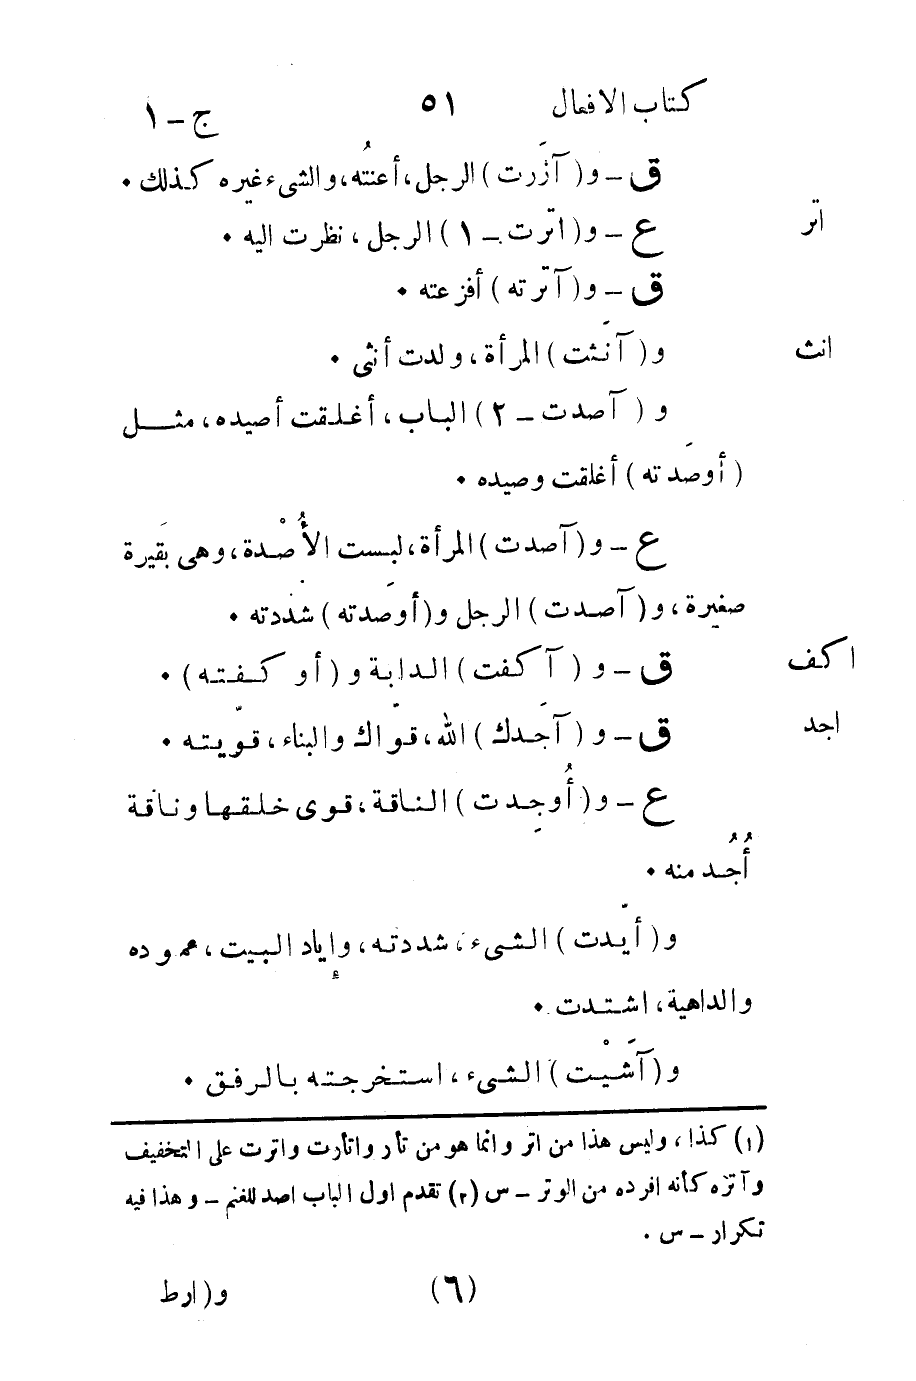 كتاب الافعال ٥١ ج – ١
ق – و (آزَرت) الرجل، أعنتُه، والشىء غيره كذلك •
اتر
ع – و (اترت – ١) الرجل، نظرت اليه •
ق – و (آترته) أفزعته •
انث
و (آنَثت) المرأة، ولدت أنثى •
و (آصدت – ٢) الباب، أغلقت أصيده، مثل
(أوصَدته) أغلقت وصيده •
ع – و (آصدت) المرأة، لبست الأُصْدة، وهى بَقيرة
صغيرة، و (آصدت) الرجل و (أوصَدته) شددته •
اكف
ق – و (آكفت) الدابة و (أوكفته) •
اجد
ق – و (آجَدك) الله، قوّاك والبناء، قوّيته •
ع – و (أُوجِدت) الناقة، قوى خلقها وناقة
أُجُد منه •
و (أيّدت) الشىء، شددته، وإياد البيت، عموده
والداهية، اشتدت •
و (آشَيْت) الشىء، استخرجته بالرفق •
(١) كذا، وليس هذا من اتر وانما هو من تأر واتأرت واترت على التخفيف
وآتره كأنه افرده من الوتر – س (٢) تقدم اول الباب اصد للغنم – وهذا فيه
تكرار – س .
(٦) و (ارط